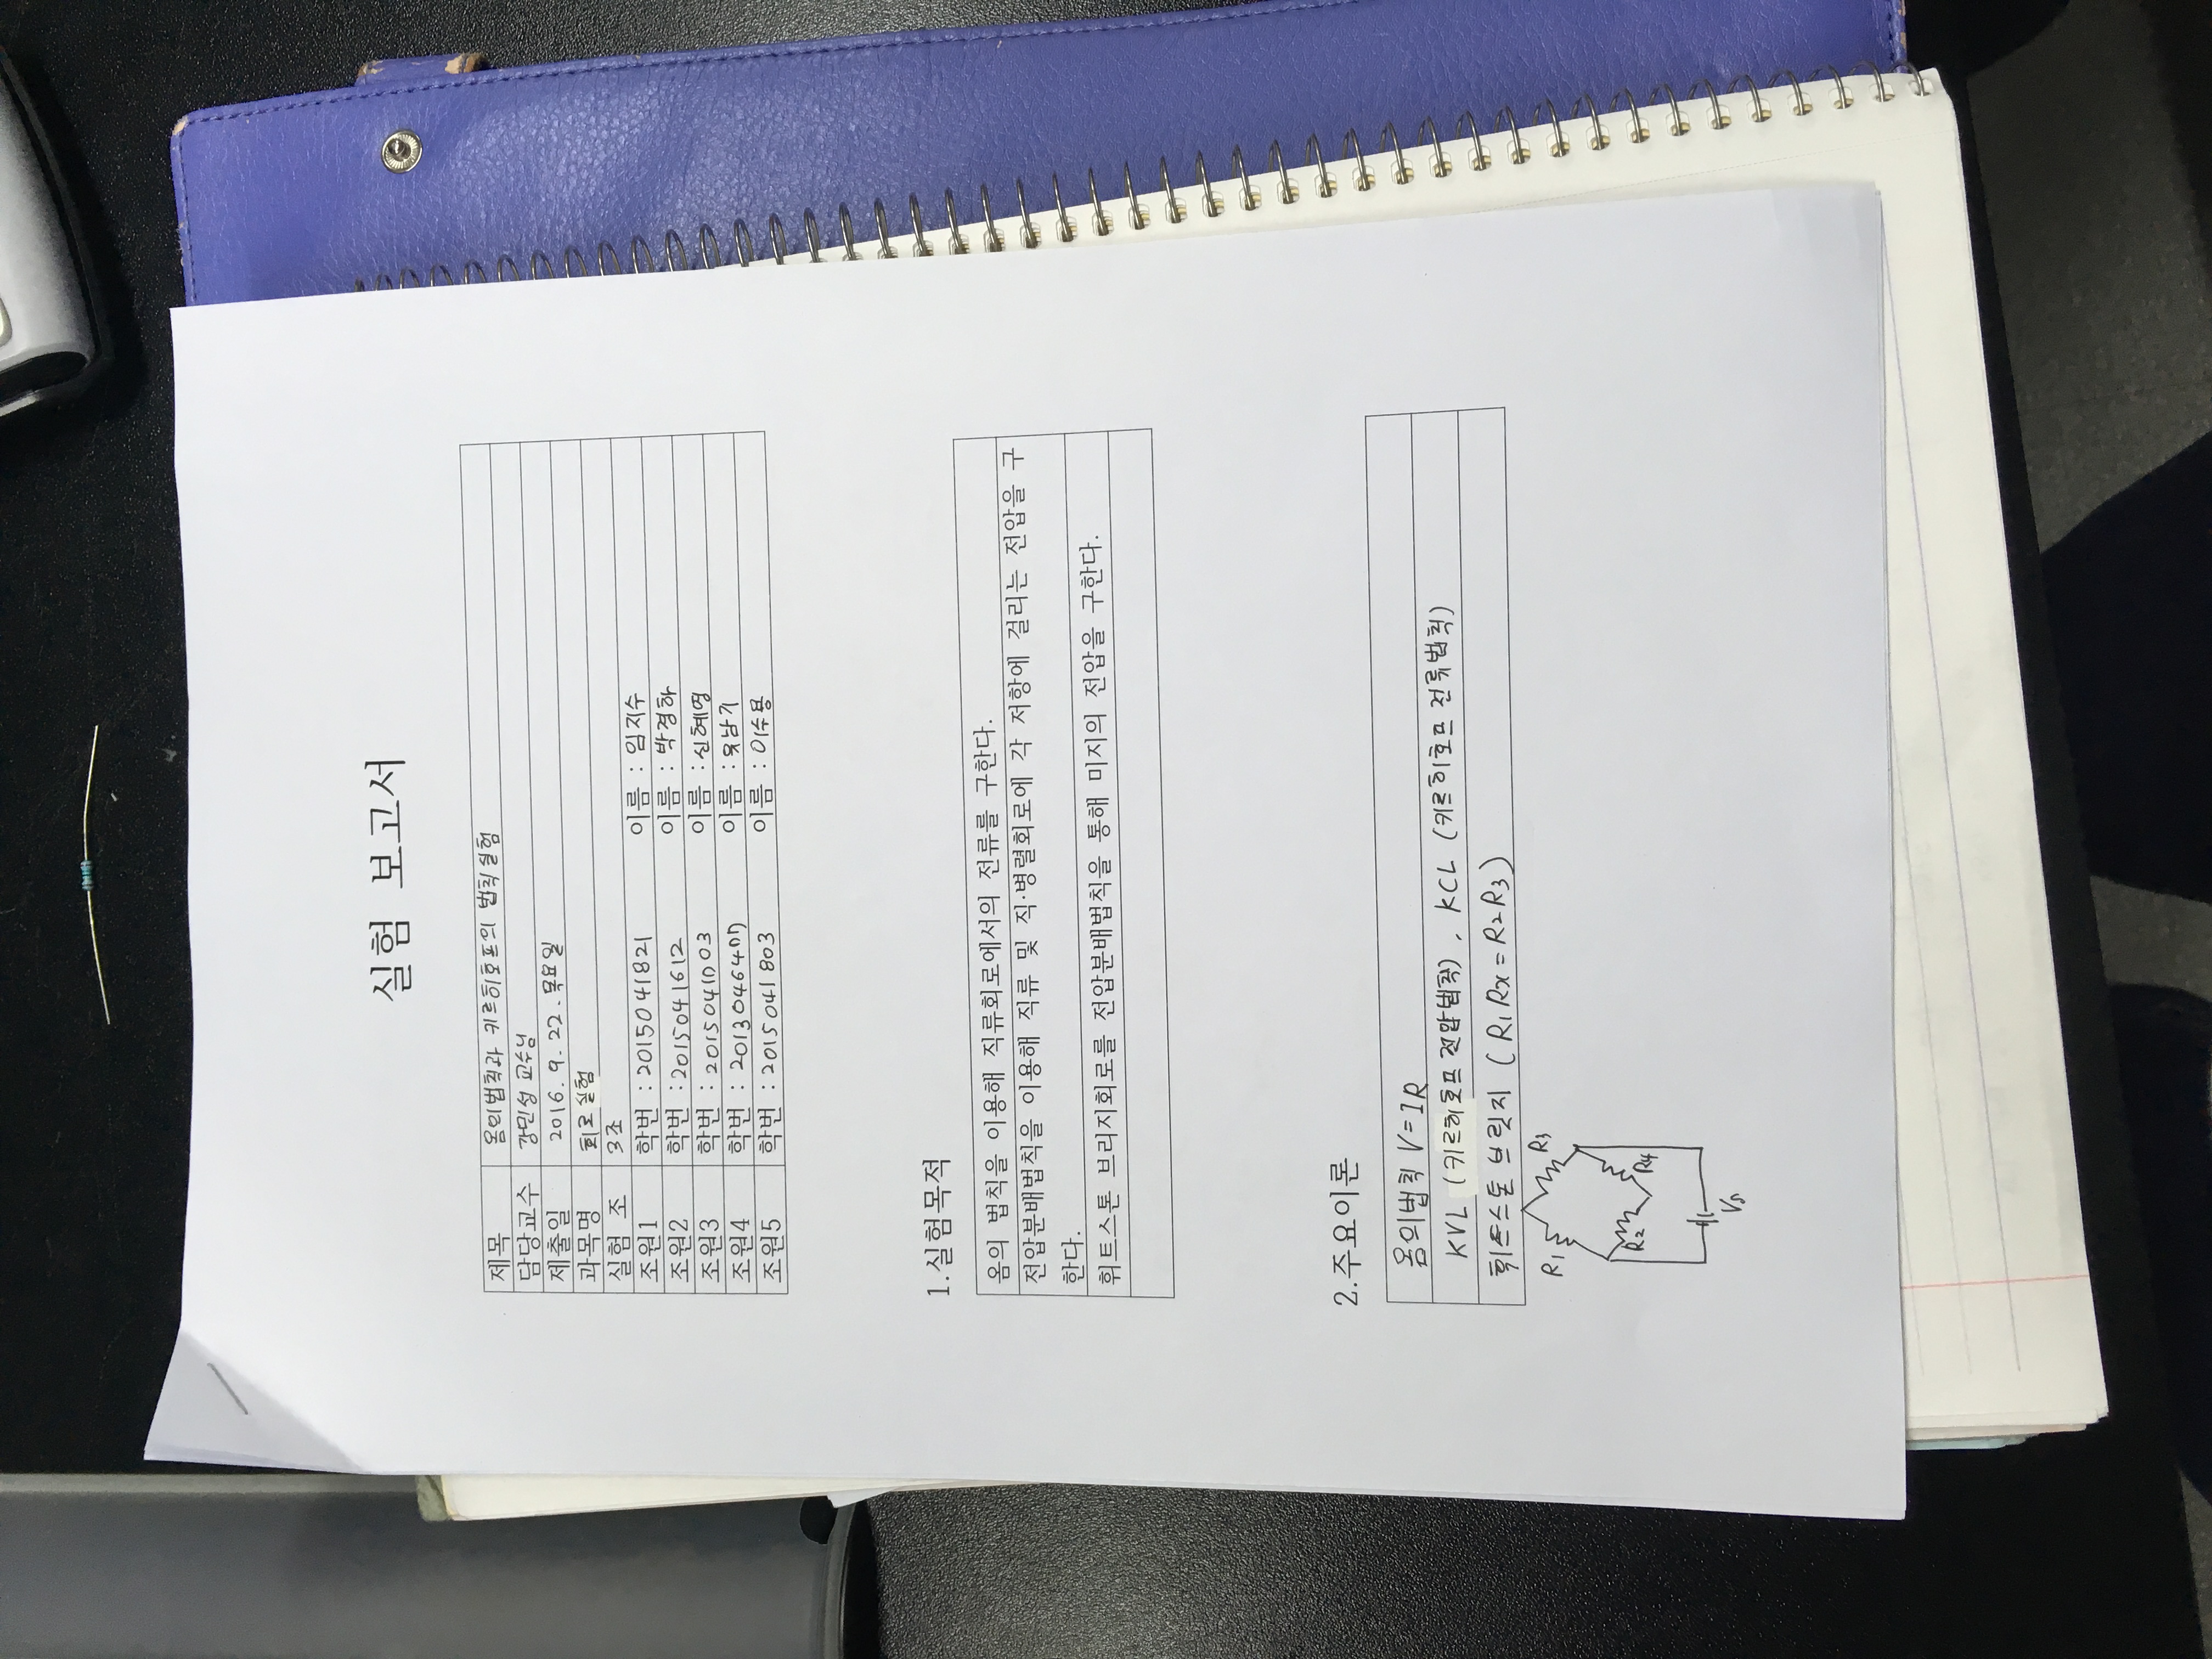 실험 보고서
제목 옴의법칙과 키르히호프의 법칙실험
담당교수 강민성 교수님
제출일 2016. 9. 22. 목요일
과목명 회로실험
실험 조 3조
조원1 학번 : 2015041821 이름 : 임지수
조원2 학번 : 2015041612 이름 : 박경하
조원3 학번 : 이름 : 신혜영
조원4 학번 : 이름 : 유남기
조원5 학번 : 2015041803 이름 : 이수용
1.실험목적
옴의 법칙을 이용해 직류회로에서의 전류를 구한다.
전압분배법칙을 이용해 직류 및 직·병렬회로에 각 저항에 걸리는 전압을 구
한다.
휘트스톤 브리지회로를 전압분배법칙을 통해 미지의 전압을 구한다.
2.주요이론
옴의법칙 V=IR
KVL (키르히호프 전압법칙), KCL (키르히호프 전류법칙)
휘트스톤 브릿지 (R1Rx=R2R3)
R1 R3
R2 R4
Vs